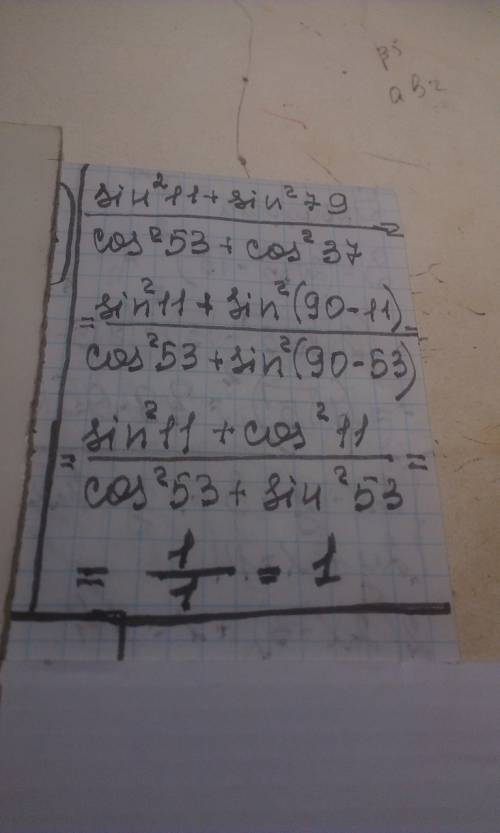 р5
а в 2
sin²11 + sin²79 =
cos²53 + cos²37
= sin²11 + sin²(90-11) =
cos²53 + sin²(90-53)
= sin²11 + cos²11 =
cos²53 + sin²53
= 1/1 = 1